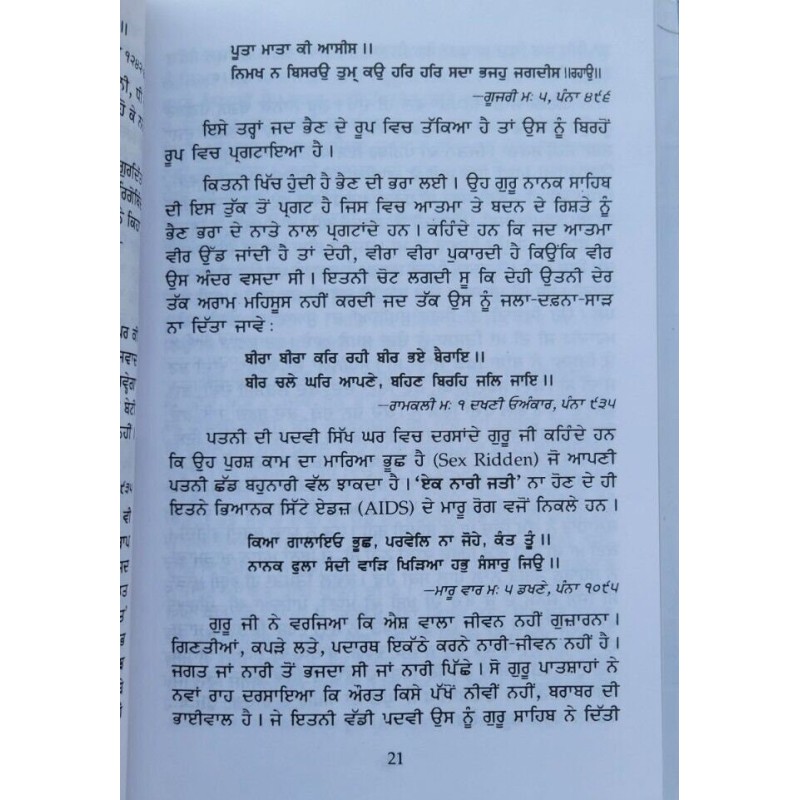 ਪੂਤਾ ਮਾਤਾ ਕੀ ਆਸੀਸ॥
ਨਿਮਖ ਨ ਬਿਸਰਉ ਤੁਮ੍ ਕਉ ਹਰਿ ਹਰਿ ਸਦਾ ਭਜਹੁ ਜਗਦੀਸ॥ਰਹਾਉ॥
—ਗੂਜਰੀ ਮ: ੫, ਪੰਨਾ ੪੯੬
ਇਸੇ ਤਰ੍ਹਾਂ ਜਦ ਭੈਣ ਦੇ ਰੂਪ ਵਿਚ ਤੱਕਿਆ ਹੈ ਤਾਂ ਉਸ ਨੂੰ ਬਿਰਹੋਂ
ਰੂਪ ਵਿਚ ਪ੍ਰਗਟਾਇਆ ਹੈ।
ਕਿਤਨੀ ਖਿੱਚ ਹੁੰਦੀ ਹੈ ਭੈਣ ਦੀ ਭਰਾ ਲਈ। ਉਹ ਗੁਰੂ ਨਾਨਕ ਸਾਹਿਬ
ਦੀ ਇਸ ਤੁੱਕ ਤੋਂ ਪ੍ਰਗਟ ਹੈ ਜਿਸ ਵਿਚ ਆਤਮਾ ਤੇ ਬਦਨ ਦੇ ਰਿਸ਼ਤੇ ਨੂੰ
ਭੈਣ ਭਰਾ ਦੇ ਨਾਤੇ ਨਾਲ ਪ੍ਰਗਟਾਂਦੇ ਹਨ। ਕਹਿੰਦੇ ਹਨ ਕਿ ਜਦ ਆਤਮਾ
ਵੀਰ ਉੱਡ ਜਾਂਦੀ ਹੈ ਤਾਂ ਦੇਹੀ, ਵੀਰਾ ਵੀਰਾ ਪੁਕਾਰਦੀ ਹੈ ਕਿਉਂਕਿ ਵੀਰ
ਉਸ ਅੰਦਰ ਵਸਦਾ ਸੀ। ਇਤਨੀ ਚੋਟ ਲਗਦੀ ਸੂ ਕਿ ਦੇਹੀ ਉਤਨੀ ਦੇਰ
ਤੱਕ ਅਰਾਮ ਮਹਿਸੂਸ ਨਹੀਂ ਕਰਦੀ ਜਦ ਤੱਕ ਉਸ ਨੂੰ ਜਲਾ-ਦਫ਼ਨਾ-ਸਾੜ
ਨਾ ਦਿੱਤਾ ਜਾਵੇ :
ਬੀਰਾ ਬੀਰਾ ਕਰਿ ਰਹੀ ਬੀਰ ਭਏ ਬੈਰਾਇ॥
ਬੀਰ ਚਲੇ ਘਰਿ ਆਪਣੇ, ਬਹਿਣ ਬਿਰਹਿ ਜਲਿ ਜਾਇ॥
—ਰਾਮਕਲੀ ਮ: ੧ ਦਖਣੀ ਓਅੰਕਾਰ, ਪੰਨਾ ੯੩੫
ਪਤਨੀ ਦੀ ਪਦਵੀ ਸਿੱਖ ਘਰ ਵਿਚ ਦਰਸਾਂਦੇ ਗੁਰੂ ਜੀ ਕਹਿੰਦੇ ਹਨ
ਕਿ ਉਹ ਪੁਰਸ਼ ਕਾਮ ਦਾ ਮਾਰਿਆ ਭੂਛ ਹੈ (Sex Ridden) ਜੋ ਆਪਣੀ
ਪਤਨੀ ਛੱਡ ਬਹੁਨਾਰੀ ਵੱਲ ਝਾਕਦਾ ਹੈ। 'ਏਕ ਨਾਰੀ ਜਤੀ' ਨਾ ਹੋਣ ਦੇ ਹੀ
ਇਤਨੇ ਭਿਆਨਕ ਸਿੱਟੇ ਏਡਜ਼ (AIDS) ਦੇ ਮਾਰੂ ਰੋਗ ਵਜੋਂ ਨਿਕਲੇ ਹਨ।
ਕਿਆ ਗਾਲਾਇਓ ਭੂਛ, ਪਰਵੇਲਿ ਨਾ ਜੋਹੇ, ਕੰਤ ਤੂੰ॥
ਨਾਨਕ ਫੁਲਾ ਸੰਦੀ ਵਾੜਿ ਖਿੜਿਆ ਹਭੁ ਸੰਸਾਰੁ ਜਿਉ॥
—ਮਾਰੂ ਵਾਰ ਮ: ੫ ਡਖਣੇ, ਪੰਨਾ ੧੦੯੫
ਗੁਰੂ ਜੀ ਨੇ ਵਰਜਿਆ ਕਿ ਐਸ਼ ਵਾਲਾ ਜੀਵਨ ਨਹੀਂ ਗੁਜ਼ਾਰਨਾ।
ਗਿਣਤੀਆਂ, ਕਪੜੇ ਲਤੇ, ਪਦਾਰਥ ਇਕੱਠੇ ਕਰਨੇ ਨਾਰੀ-ਜੀਵਨ ਨਹੀਂ ਹੈ।
ਜਗਤ ਜਾਂ ਨਾਰੀ ਤੋਂ ਭਜਦਾ ਸੀ ਜਾਂ ਨਾਰੀ ਪਿੱਛੇ। ਸੋ ਗੁਰੂ ਪਾਤਸ਼ਾਹਾਂ ਨੇ
ਨਵਾਂ ਰਾਹ ਦਰਸਾਇਆ ਕਿ ਔਰਤ ਕਿਸੇ ਪੱਖੋਂ ਨੀਵੀਂ ਨਹੀਂ, ਬਰਾਬਰ ਦੀ
ਭਾਈਵਾਲ ਹੈ। ਜੇ ਇਤਨੀ ਵੱਡੀ ਪਦਵੀ ਉਸ ਨੂੰ ਗੁਰੂ ਸਾਹਿਬ ਨੇ ਦਿੱਤੀ
21